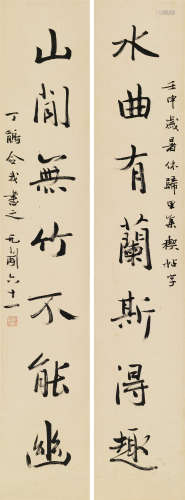 壬申歲暑休歸里集禊帖字
水曲有蘭斯得趣
山閒無竹不能幽
丁鶴念戎書之
六十一